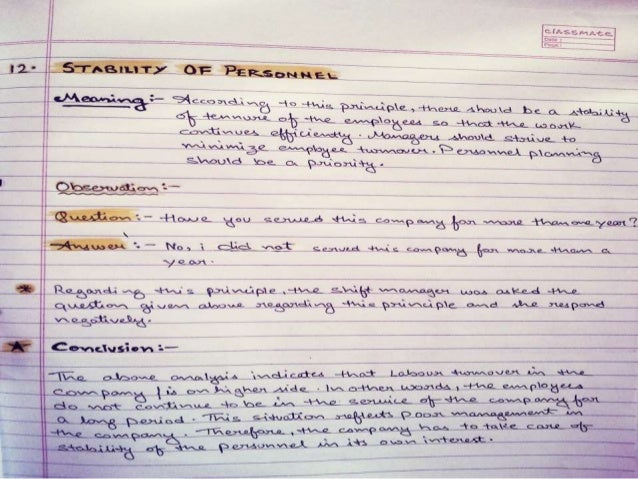 classmate
Date :
Page :
12. STABILITY OF PERSONNEL
Meaning :- According to this principle, there should be a stability
of tennure of the employees so that the work
continues efficiently. Managers should strive to
minimize employee turnover. Personnel planning
should be a priority.
Observation :-
Question :- Have you served this company for more than one year?
Answer :- No, i did not served this company for more than a
year.
* Regarding this principle, the shift manager was asked the
question given above regarding this principle and she respond
negatively.
★ Conclusion :-
The above analysis indicates that Labour turnover in the
company is on higher side. In other words, the employees
do not continue to be in the service of the company for
a long period. This situation reflects poor management in
the company. Therefore, the company has to take care of
stability of the personnel in its own interest.